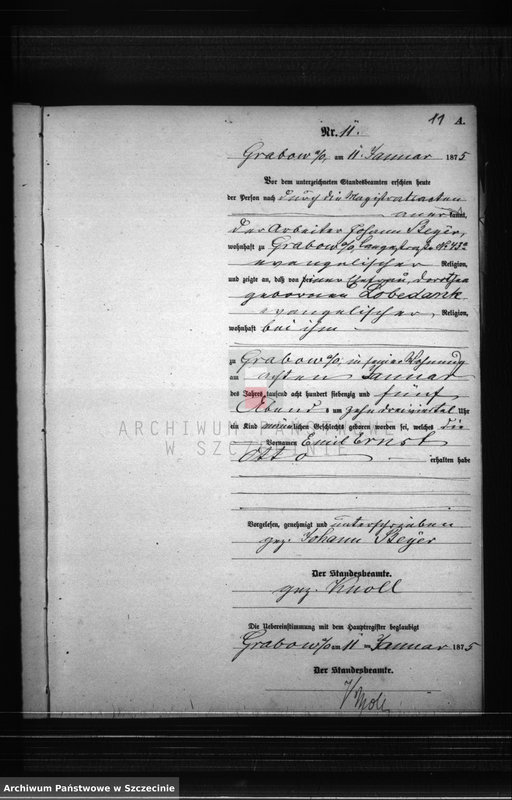 11 A.
Nr. 11.
Grabow a/O, am 11. Januar 1875
Vor dem unterzeichneten Standesbeamten erschien heute
der Person nach durch die Magistratsacten
aner kannt,
der Arbeiter Johann Beyer,
wohnhaft zu Grabow a/O Langestraße №
evangelischer Religion,
und zeigte an, daß von seiner Ehefrau, Dorothea
gebornen Lobedank
evangelischer Religion,
wohnhaft bei ihm
zu Grabow a/O, in seiner Wohnung
am achten Januar
des Jahres tausend acht hundert siebenzig und fünf
Abend s um zehn dreiviertel Uhr
ein Kind männlichen Geschlechts geboren worden sei, welches die
Vornamen Emil Ernst
Otto erhalten habe
Vorgelesen, genehmigt und unterschrieben
gez. Johann Beyer
Der Standesbeamte.
gez. Knoll
Die Uebereinstimmung mit dem Hauptregister beglaubigt
Grabow a/O am 11 ten Januar 1875
Der Standesbeamte.
Knoll
ARCHIWUM PAŃSTWOWE
W SZCZECINIE
Archiwum Państwowe w Szczecinie